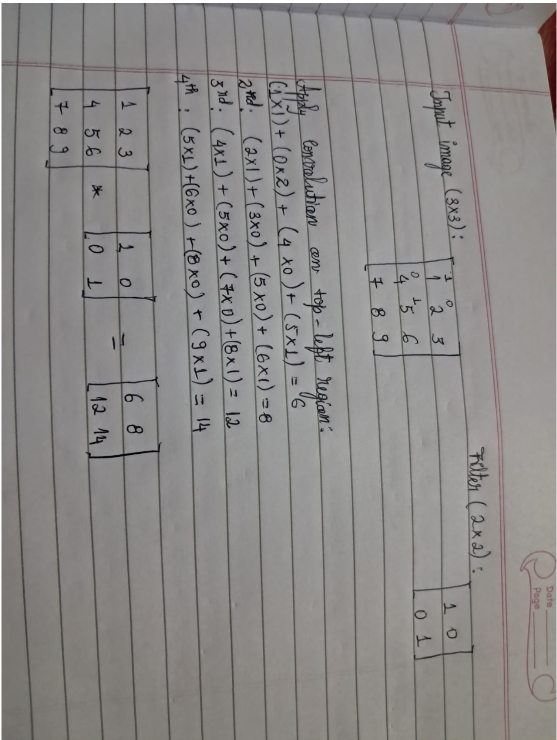 Date
Page
Input image (3x3):
1 2 3
4 5 6
7 8 9
1 0
0 1
Filter (2x2):
1 0
0 1
Apply convolution on top-left region:
(1x1) + (0x2) + (4x0) + (5x1) = 6
2nd: (2x1) + (3x0) + (5x0) + (6x1) = 8
3rd: (4x1) + (5x0) + (7x0) + (8x1) = 12
4th: (5x1) + (6x0) + (8x0) + (9x1) = 14
1 2 3 1 0 6 8
4 5 6 * 0 1 = 12 14
7 8 9